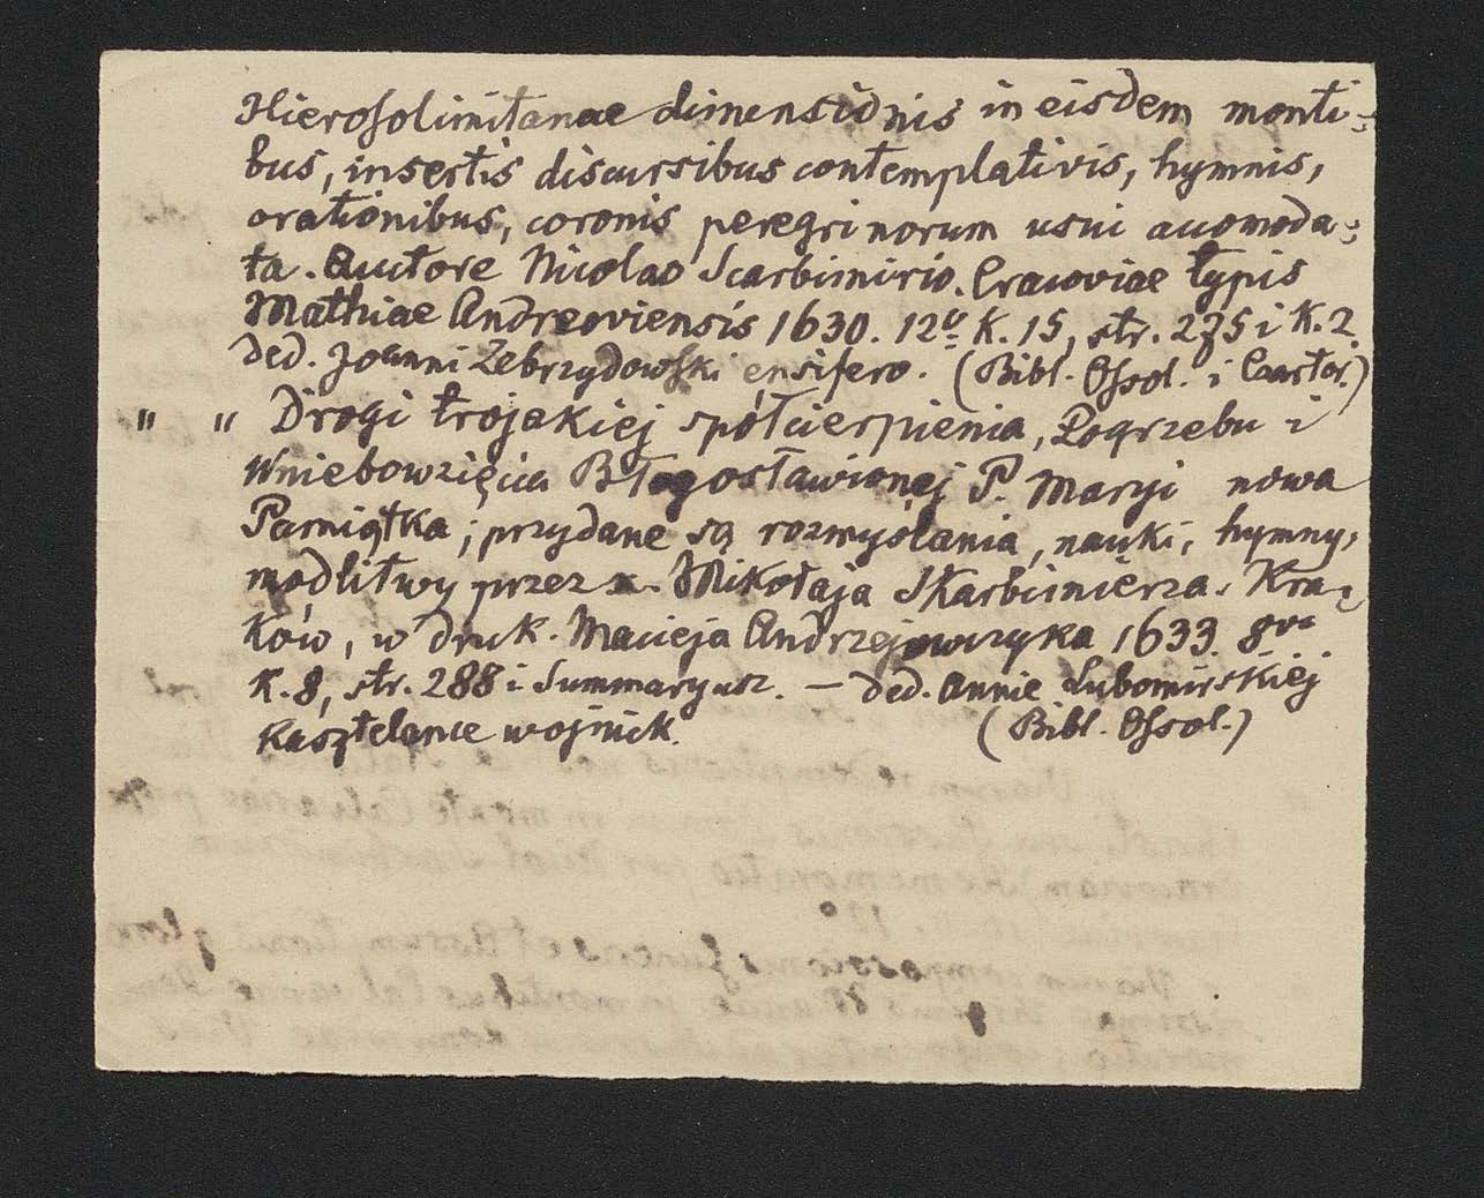 Hierosolimitanae dimensionis in eisdem monti-
bus, insertis discursibus contemplativis, hymnis,
orationibus, coronis peregrinorum usui accomoda-
ta. Auctore Nicolao Scarbimirio. Cracoviae typis
Mathiae Andreoviensis 1630. 12º K. 15, str. 275 i K. 2
ded. Joanni Zebrzydowski ensifero. (Bibl. Ossol. i Czartor.)
" " Drogi trojakiej spółcierpienia, Pogrzebu i
Wniebowzięcia Błogosławionej P. Maryi nowa
Pamiątka; przydane są rozmyślania, nauki, hymny,
modlitwy przez x. Mikołaja Skarbimierza. Kra-
ków, w druk. Macieja Andrzejowczyka 1633. 8vo
K. 8, str. 288 i Summaryusz. — ded. Annie Lubomirskiej
Kasztelance wojnick. (Bibl. Ossol.)